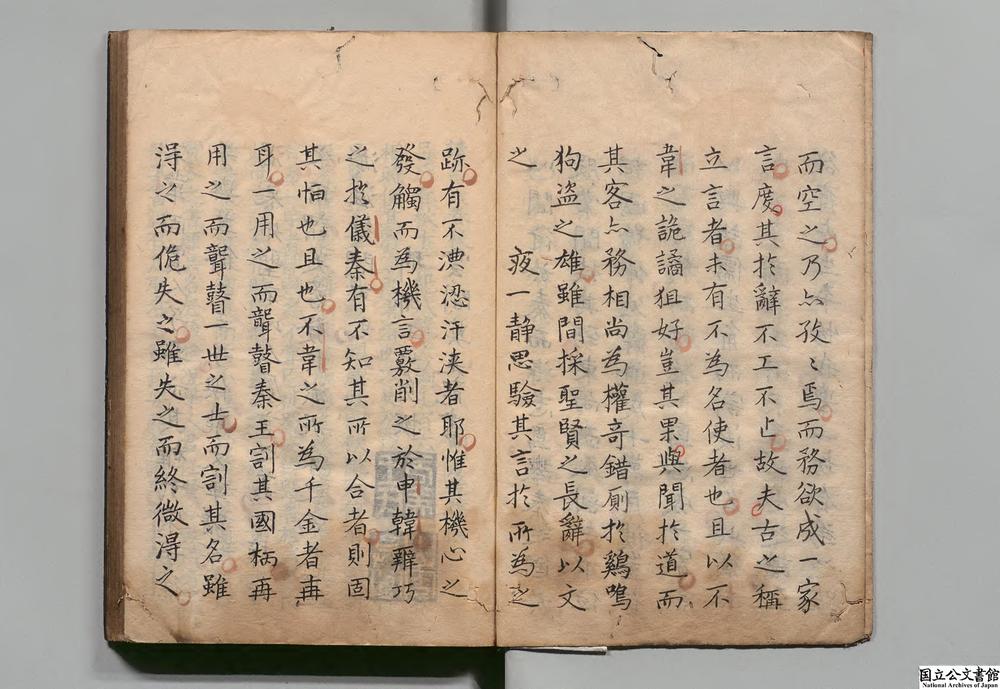 而空之乃亦孜〻焉而務欲成一家
言度其於辭不工不止故夫古之稱
立言者未有不為名使者也且以不
韋之詭譎狙好豈其果與聞於道而
其客亦務相尚為權奇錯厠於鷄鳴
狗盗之雄雖間採聖賢之長辭以文
之 夜一静思驗其言於所為之
跡有不漕㳷汗浹者耶惟其機心之
發觸而為機言覈削之於申韓辯巧
之於儀秦有不知其所以合者則固
其怕也且也不韋之所為千金者再
耳一用之而聾瞽秦王割其國柄再
用之而聾瞽一世之士而割其名雖
淂之而佹失之雖失之而終微淂之
国立公文書館
National Archives of Japan